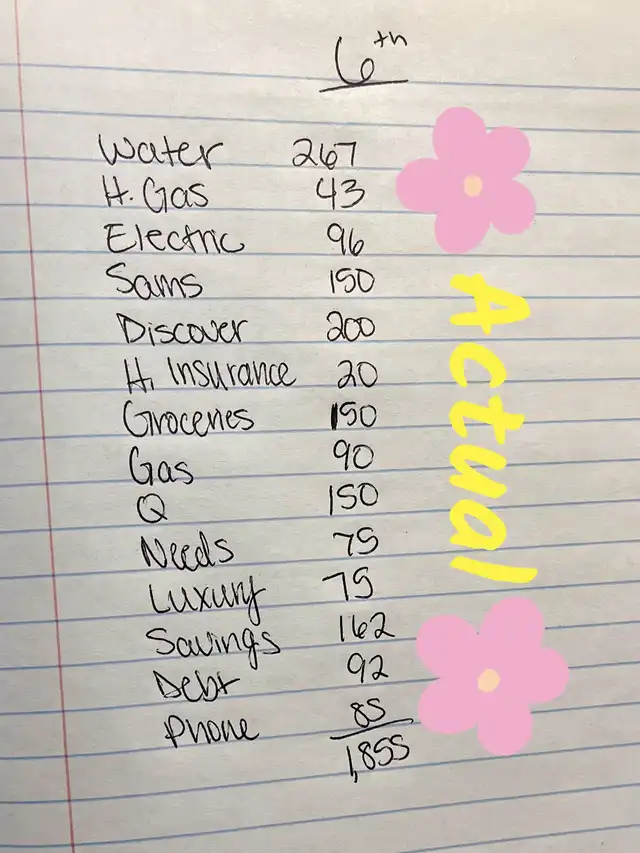 6th
Water 267
H. Gas 43
Electric 96
Sams 150
Discover 200
H. Insurance 20
Groceries 150
Gas 90
Q 150
Needs 75
Luxury 75
Savings 162
Debt 92
Phone 85
1,855
Actual